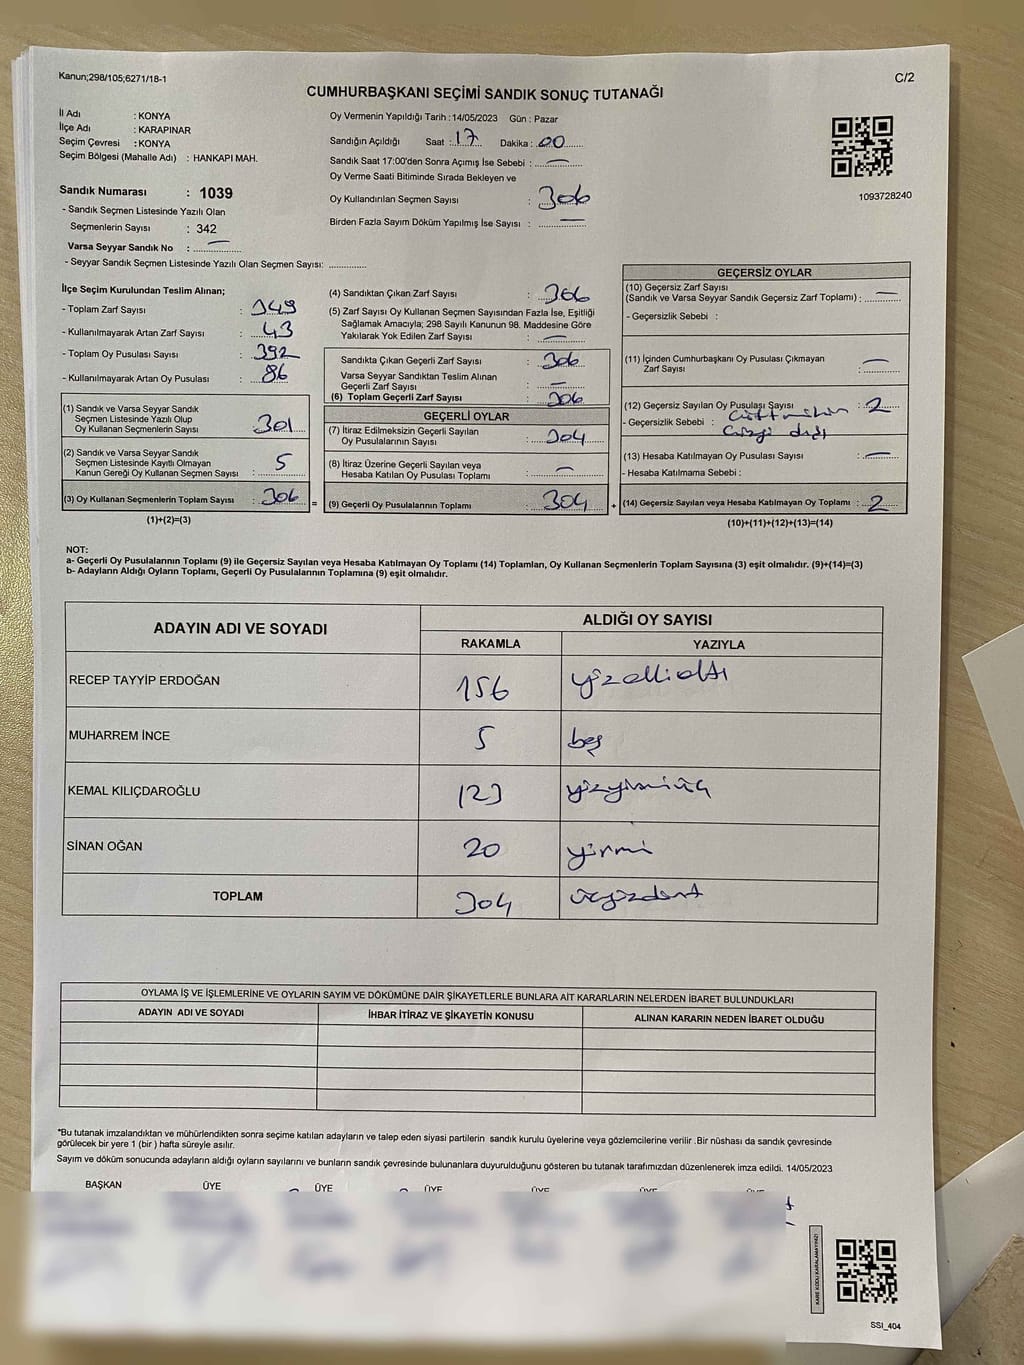 Kanun;298/105;6271/18-1
C/2
CUMHURBAŞKANI SEÇİMİ SANDIK SONUÇ TUTANAĞI
İl Adı : KONYA
İlçe Adı : KARAPINAR
Seçim Çevresi : KONYA
Seçim Bölgesi (Mahalle Adı) : HANKAPI MAH.
Sandık Numarası : 1039
- Sandık Seçmen Listesinde Yazılı Olan
Seçmenlerin Sayısı : 342
Varsa Seyyar Sandık No : —
- Seyyar Sandık Seçmen Listesinde Yazılı Olan Seçmen Sayısı: ..............
Oy Vermenin Yapıldığı Tarih : 14/05/2023 Gün : Pazar
Sandığın Açıldığı Saat : 17 Dakika : 00
Sandık Saat 17:00'den Sonra Açımış İse Sebebi : —
Oy Verme Saati Bitiminde Sırada Bekleyen ve
Oy Kullandırılan Seçmen Sayısı : 306
Birden Fazla Sayım Döküm Yapılmış İse Sayısı : —
1093728240
İlçe Seçim Kurulundan Teslim Alınan;
- Toplam Zarf Sayısı : 349
- Kullanılmayarak Artan Zarf Sayısı : 43
- Toplam Oy Pusulası Sayısı : 392
- Kullanılmayarak Artan Oy Pusulası : 86
(1) Sandık ve Varsa Seyyar Sandık
Seçmen Listesinde Yazılı Olup
Oy Kullanan Seçmenlerin Sayısı : 301
(2) Sandık ve Varsa Seyyar Sandık
Seçmen Listesinde Kayıtlı Olmayan
Kanun Gereği Oy Kullanan Seçmen Sayısı : 5
(3) Oy Kullanan Seçmenlerin Toplam Sayısı : 306 =
(1)+(2)=(3)
(4) Sandıktan Çıkan Zarf Sayısı : 306
(5) Zarf Sayısı Oy Kullanan Seçmen Sayısından Fazla İse, Eşitliği
Sağlamak Amacıyla; 298 Sayılı Kanunun 98. Maddesine Göre
Yakılarak Yok Edilen Zarf Sayısı : —
Sandıkta Çıkan Geçerli Zarf Sayısı : 306
Varsa Seyyar Sandıktan Teslim Alınan
Geçerli Zarf Sayısı : —
(6) Toplam Geçerli Zarf Sayısı : 306
GEÇERLİ OYLAR
(7) İtiraz Edilmeksizin Geçerli Sayılan
Oy Pusulalarının Sayısı : 304
(8) İtiraz Üzerine Geçerli Sayılan veya
Hesaba Katılan Oy Pusulaları Toplamı : —
(9) Geçerli Oy Pusulalarının Toplamı : 304 +
GEÇERSİZ OYLAR
(10) Geçersiz Zarf Sayısı
(Sandık ve Varsa Seyyar Sandık Geçersiz Zarf Toplamı) : —
- Geçersizlik Sebebi :
(11) İçinden Cumhurbaşkanı Oy Pusulası Çıkmayan
Zarf Sayısı : —
(12) Geçersiz Sayılan Oy Pusulası Sayısı : 2
- Geçersizlik Sebebi : Çift mühür
Çizgi dışı
(13) Hesaba Katılmayan Oy Pusulası Sayısı : —
- Hesaba Katılmama Sebebi :
(14) Geçersiz Sayılan veya Hesaba Katılmayan Oy Toplamı : 2
(10)+(11)+(12)+(13)=(14)
NOT:
a- Geçerli Oy Pusulalarının Toplamı (9) ile Geçersiz Sayılan veya Hesaba Katılmayan Oy Toplamı (14) Toplamları, Oy Kullanan Seçmenlerin Toplam Sayısına (3) eşit olmalıdır. (9)+(14)=(3)
b- Adayların Aldığı Oyların Toplamı, Geçerli Oy Pusulalarının Toplamına (9) eşit olmalıdır.
ADAYIN ADI VE SOYADI
ALDIĞI OY SAYISI
RAKAMLA YAZIYLA
RECEP TAYYİP ERDOĞAN 156 yüzellialtı
MUHARREM İNCE 5 beş
KEMAL KILIÇDAROĞLU 123 yüzyirmiüç
SİNAN OĞAN 20 yirmi
TOPLAM 304 üçyüzdört
OYLAMA İŞ VE İŞLEMLERİNE VE OYLARIN SAYIM VE DÖKÜMÜNE DAİR ŞİKAYETLERLE BUNLARA AİT KARARLARIN NELERDEN İBARET BULUNDUKLARI
ADAYIN ADI VE SOYADI İHBAR İTİRAZ VE ŞİKAYETİN KONUSU ALINAN KARARIN NEDEN İBARET OLDUĞU
*Bu tutanak imzalandıktan ve mühürlendikten sonra seçime katılan adayların ve talep eden siyasi partilerin sandık kurulu üyelerine veya gözlemcilerine verilir .Bir nüshası da sandık çevresinde
görülecek bir yere 1 (bir ) hafta süreyle asılır.
Sayım ve döküm sonucunda adayların aldığı oyların sayılarını ve bunların sandık çevresinde bulunanlara duyurulduğunu gösteren bu tutanak tarafımızdan düzenlenerek imza edildi. 14/05/2023
BAŞKAN ÜYE ÜYE ÜYE ÜYE ÜYE ÜYE
KARE KODU KARALAMAYINIZ!
SSI_404